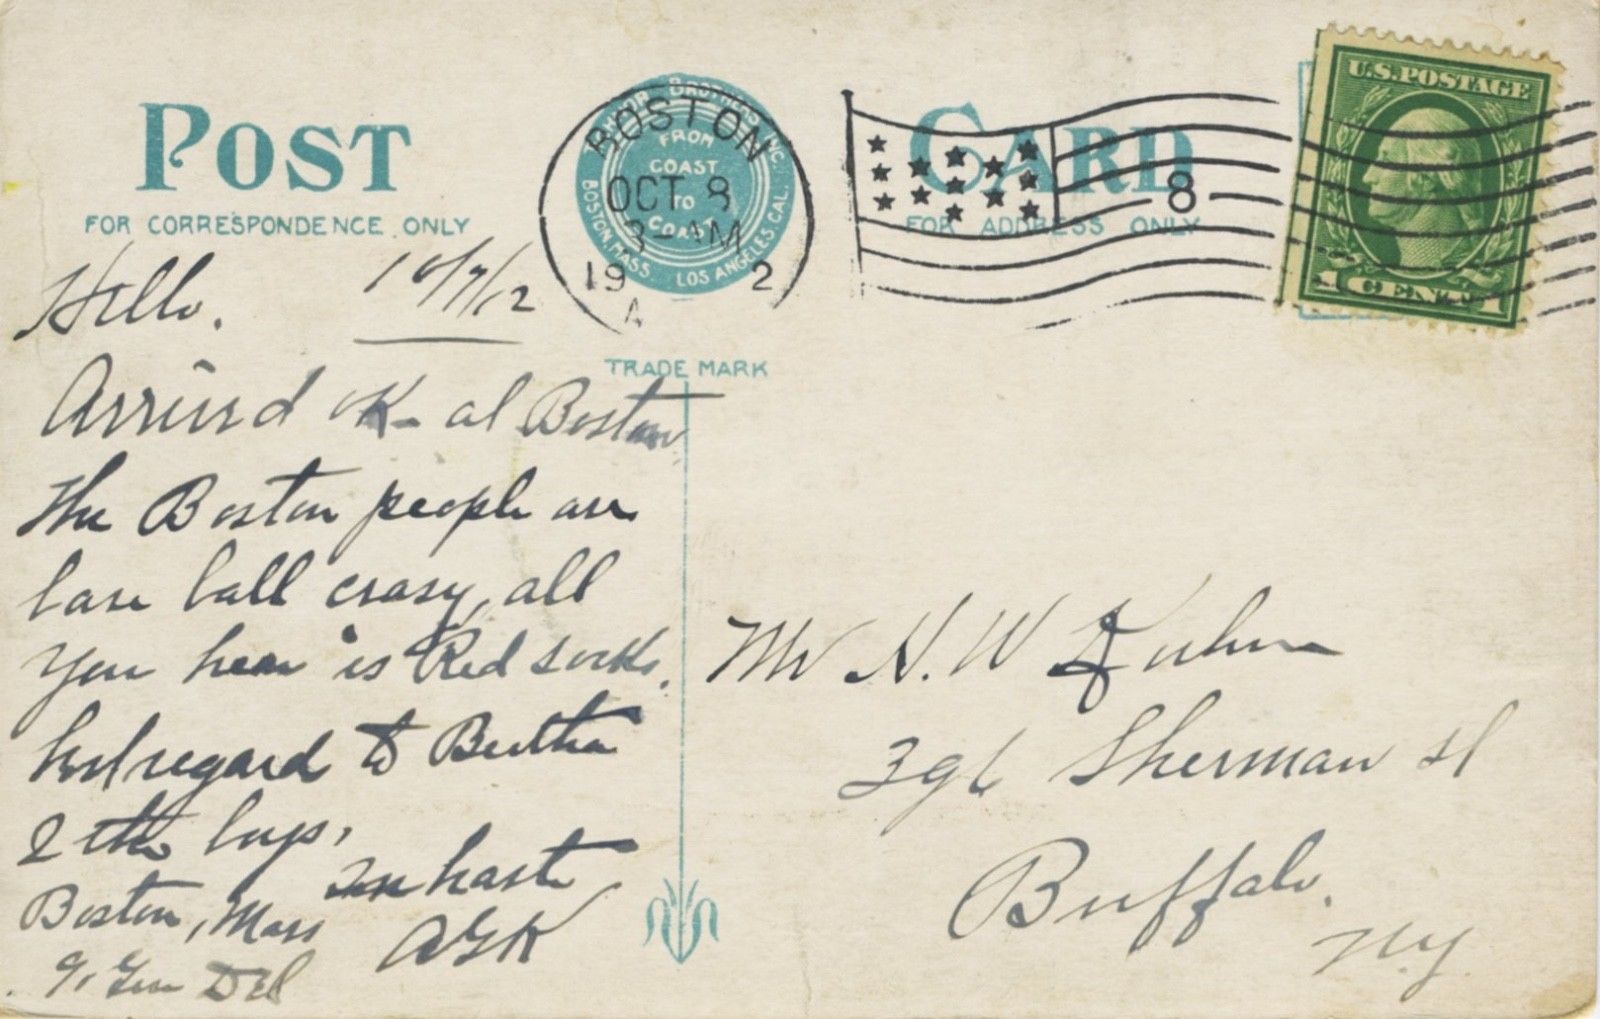 POST CARD
FOR CORRESPONDENCE ONLY
FOR ADDRESS ONLY
THAYER BROTHERS INC.
FROM
COAST
TO
COAST
BOSTON, MASS LOS ANGELES, CAL.
TRADE MARK
BOSTON
OCT 8
3-AM
19 2
A
8
U.S. POSTAGE
1 CENT 1
Hello. 10/7/12
Arrived OK at Boston
The Boston people are
base ball crasy, all
you hear is Red socks.
best regard to Bertha
& the boys.
In haste
Boston, Mass AGK
Gen Del
Mr H. W Kuhn
396 Sherman st
Buffalo.
N.Y.